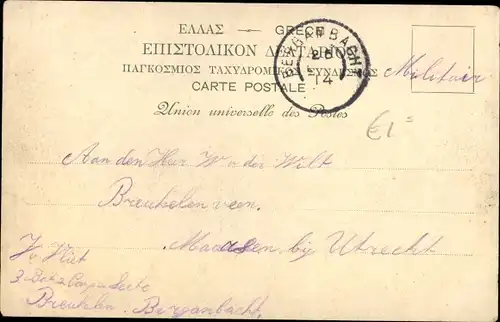 ΕΛΛΑΣ — GRECE
ΕΠΙΣΤΟΛΙΚΟΝ ΔΕΛΤΑΡΙΟΝ
ΠΑΓΚΟΣΜΙΟΣ ΤΑΧΥΔΡΟΜΙΚΟΣ ΣΥΝΔΕΣΜΟΣ
CARTE POSTALE
Union universelle des Postes
BERGAMBACHT
28
14
Militair
€1=
Aan den Heer W v der Wilt
Breukelenveen.
Maarsen bij Utrecht
Vliet
3 Bat 2 Comp
Breukelen. Bergambacht,